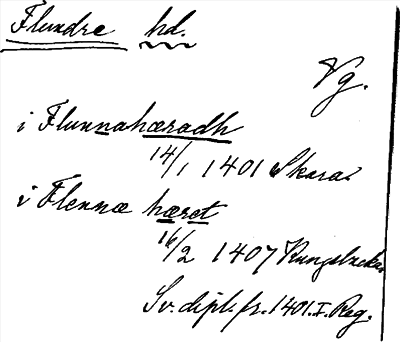 Flundre hd.
Vg.
i Flunnahæradh
14/1 1401 Skara
i Flennæ hæret
16/2 1407 Kungslucka
Sv. dipl. fr. 1401. I. Reg.